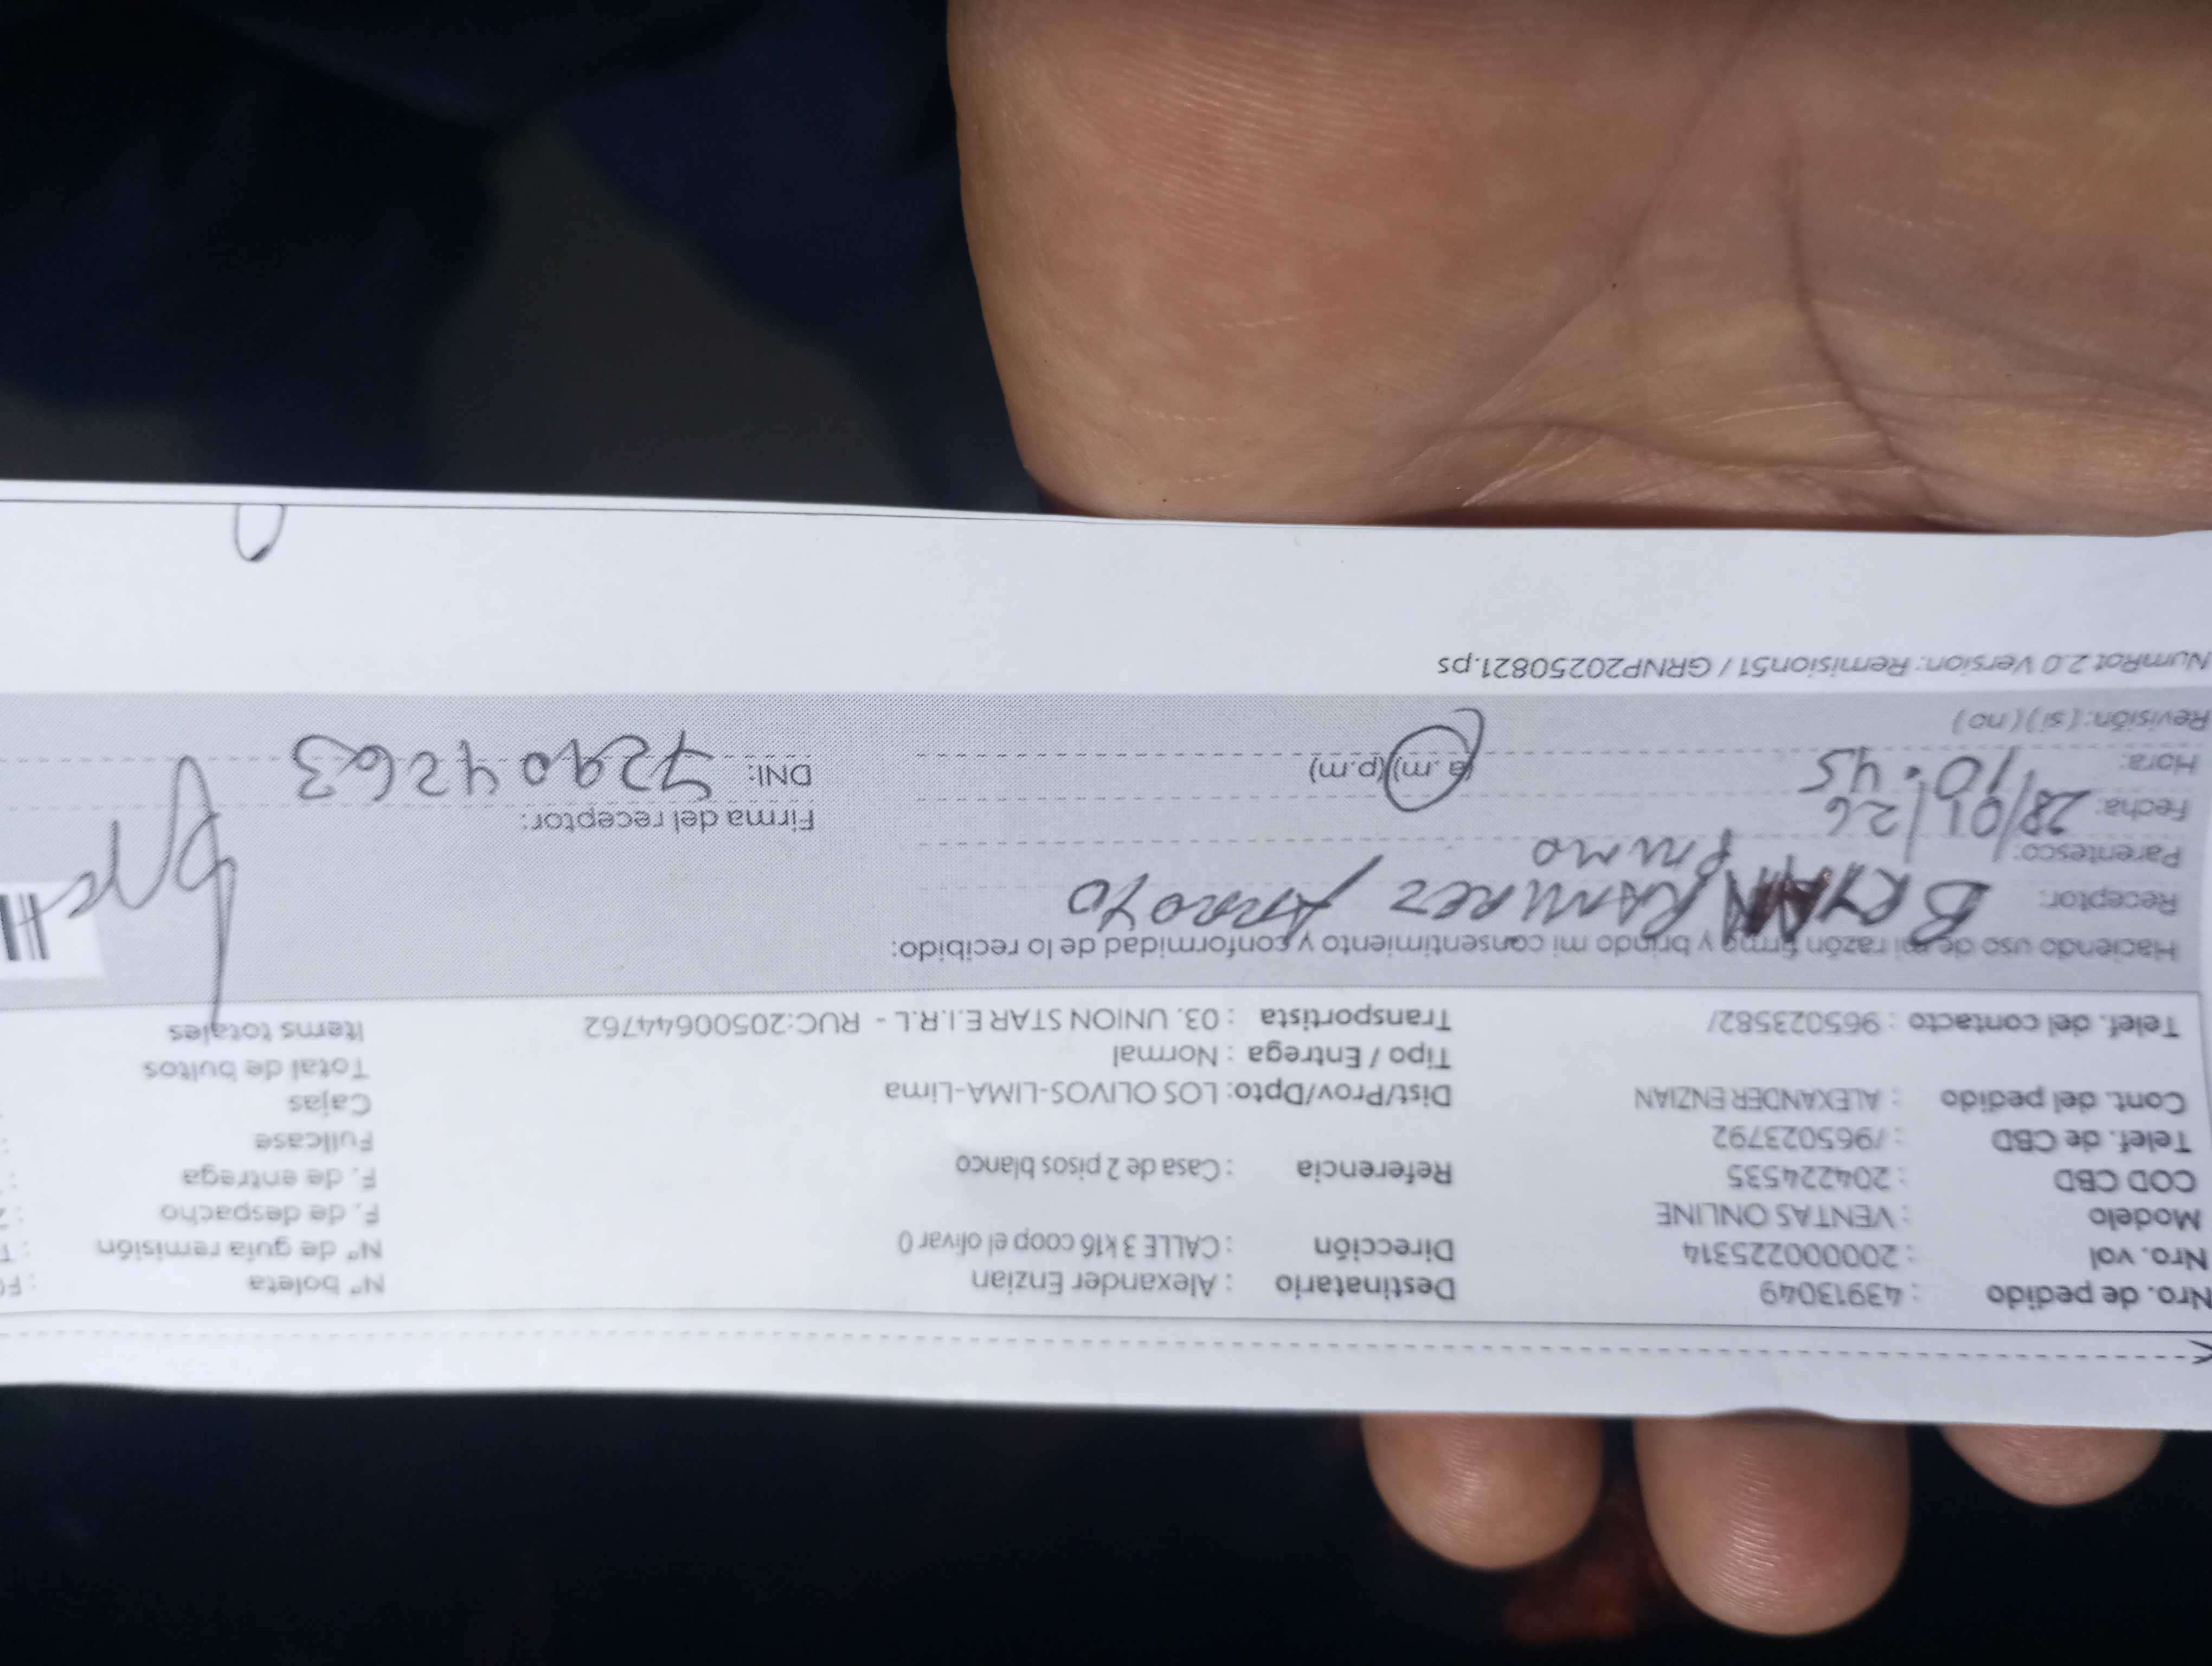 Nro. de pedido : 43913049 Destinatario : Alexander Enzian N° boleta
Nro. vol : 200000225314 Dirección : CALLE 3 k16 coop el olivar 0 N° de guía remisión : T
Modelo : VENTAS ONLINE F. de despacho
COD CBD : 204224535 Referencia : Casa de 2 pisos blanco F. de entrega :
Telef. de CBD : /965023792 Fullcase :
Cont. del pedido : ALEXANDER ENZIAN Dist/Prov/Dpto: LOS OLIVOS-LIMA-Lima Cajas :
Tipo / Entrega : Normal Total de bultos
Telef. del contacto : 965023582/ Transportista : 03. UNION STAR E.I.R.L - RUC:20500644762 Items totales
Haciendo uso de mi razón firmo y brindo mi consentimiento y conformidad de lo recibido:
Receptor: BRYAN RAMIREZ ARROYO
Parentesco: primo
Fecha: 28/01/26 Firma del receptor:
Hora: 10:45 (a.m)(p.m) DNI: 72904263
Revisión: (si) (no)
NumRot 2.0 Version: Remision51 / GRNP20250821.ps